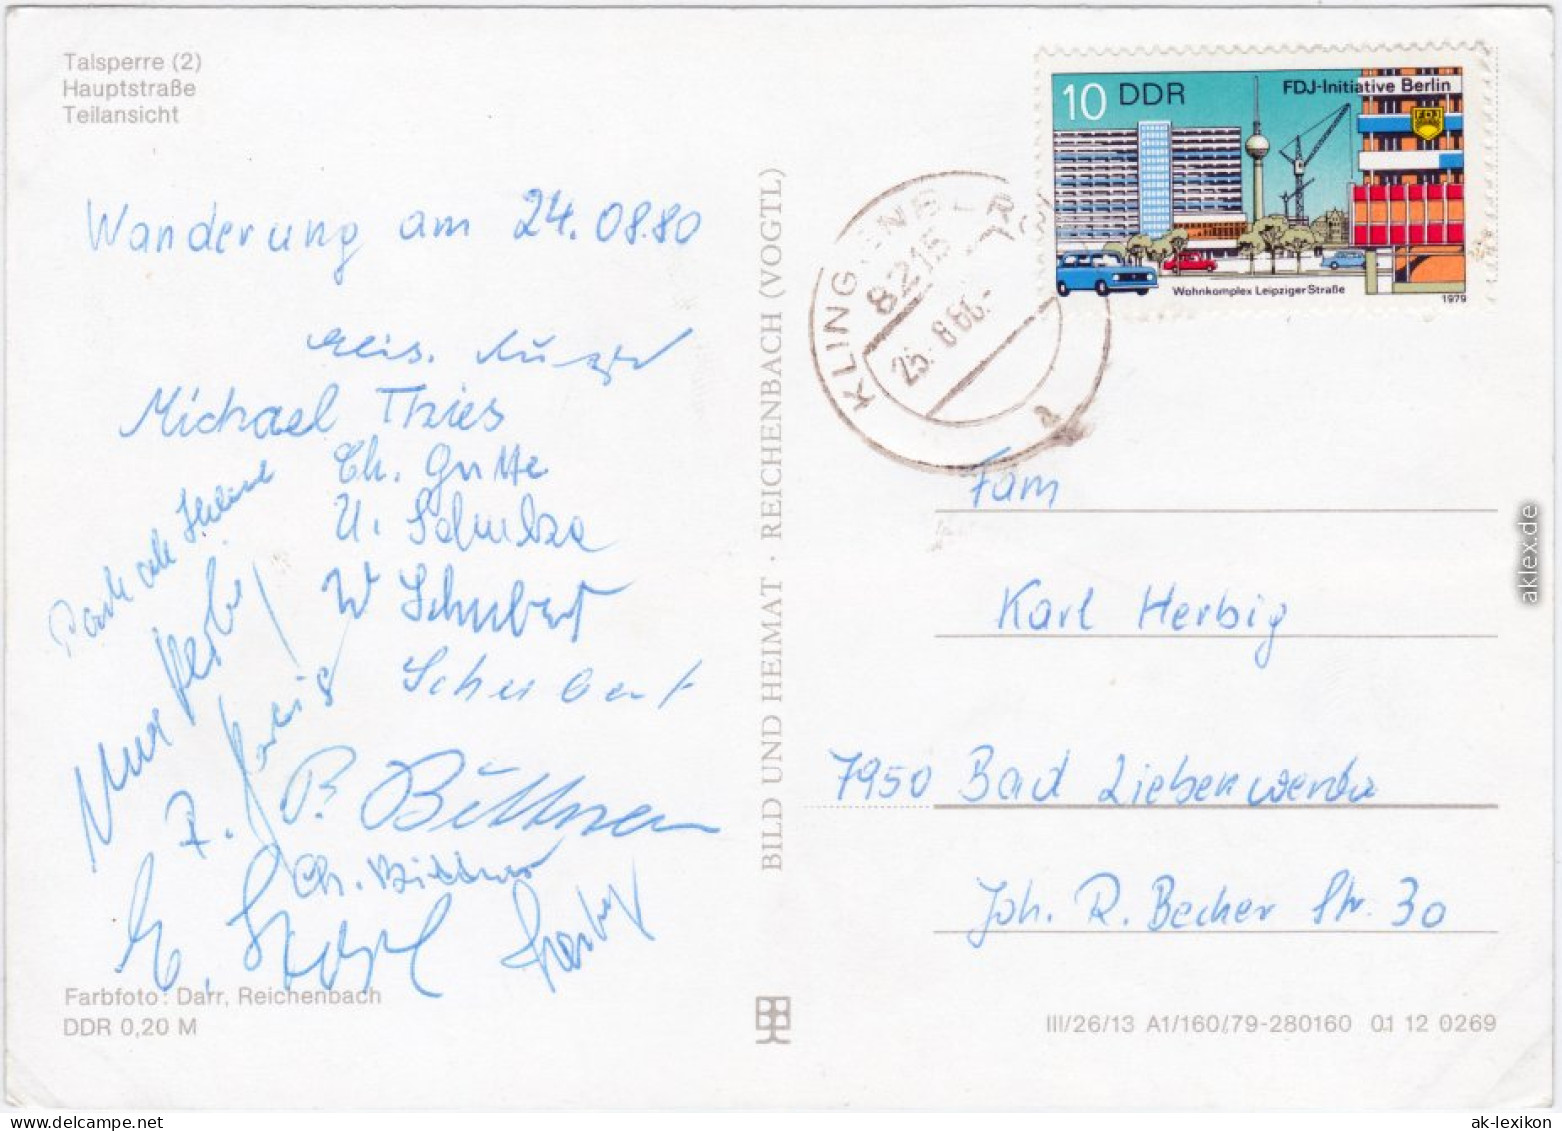 Talsperre (2)
Hauptstraße
Teilansicht
Wanderung am 24.08.80
Michael Thies
Ch. Gutte
U. Schulze
W Schubert
Schubert
P. Büttner
Ch. Büttner
Farbfoto: Darr, Reichenbach
DDR 0,20 M
BILD UND HEIMAT · REICHENBACH (VOGTL)
10 DDR
FDJ-Initiative Berlin
FDJ
Wohnkomplex Leipziger Straße
1979
KLINGENBERG
8215
25.-8 80.-
a
Fam
Karl Herbig
7950 Bad Liebenwerda
Joh. R. Becher Str. 30
III/26/13 A1/160/79-280160 01 12 0269
aklex.de
ak-lexikon